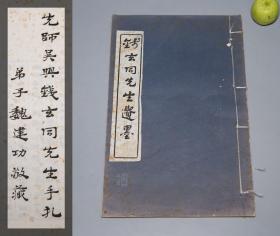 先師吳興錢玄同先生手札
弟子魏建功敬藏
錢玄同先生遺墨